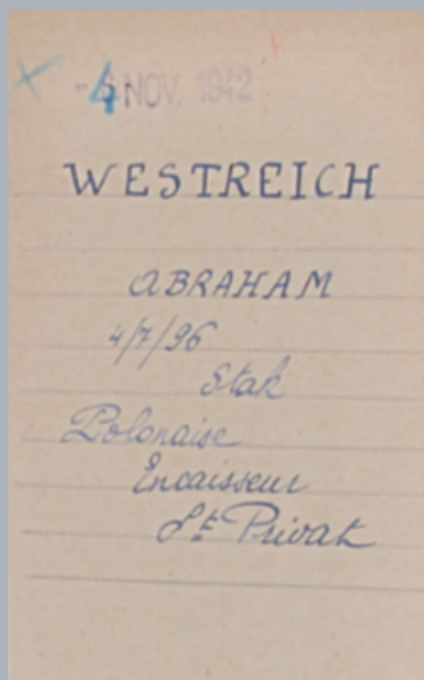 -4 NOV. 1942
WESTREICH
ABRAHAM
4/7/96
Stak
Polonaise
Encaisseur
St Privat